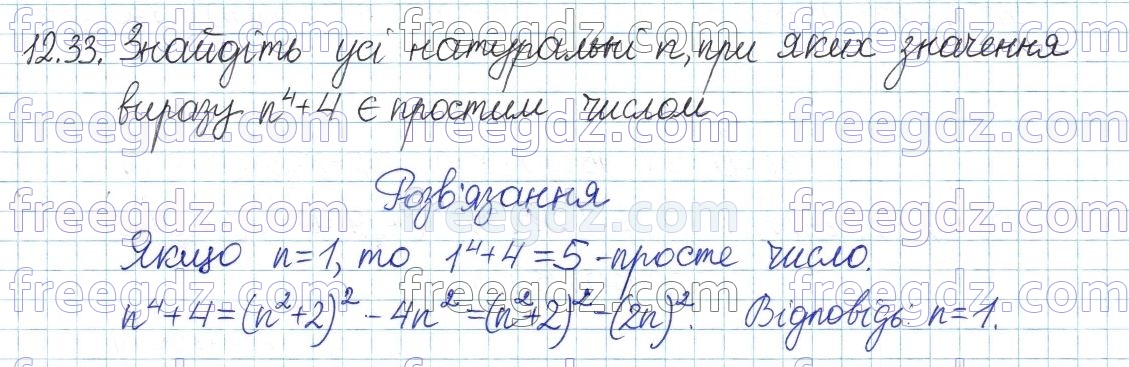 12.33. Знайдіть усі натуральні n, при яких значення
виразу n⁴+4 є простим числом
Розв'язання
Якщо n=1, то 1⁴+4=5 - просте число.
n⁴+4=(n²+2)²-4n²=(n²+2)²-(2n)². Відповідь: n=1.
freegdz.com